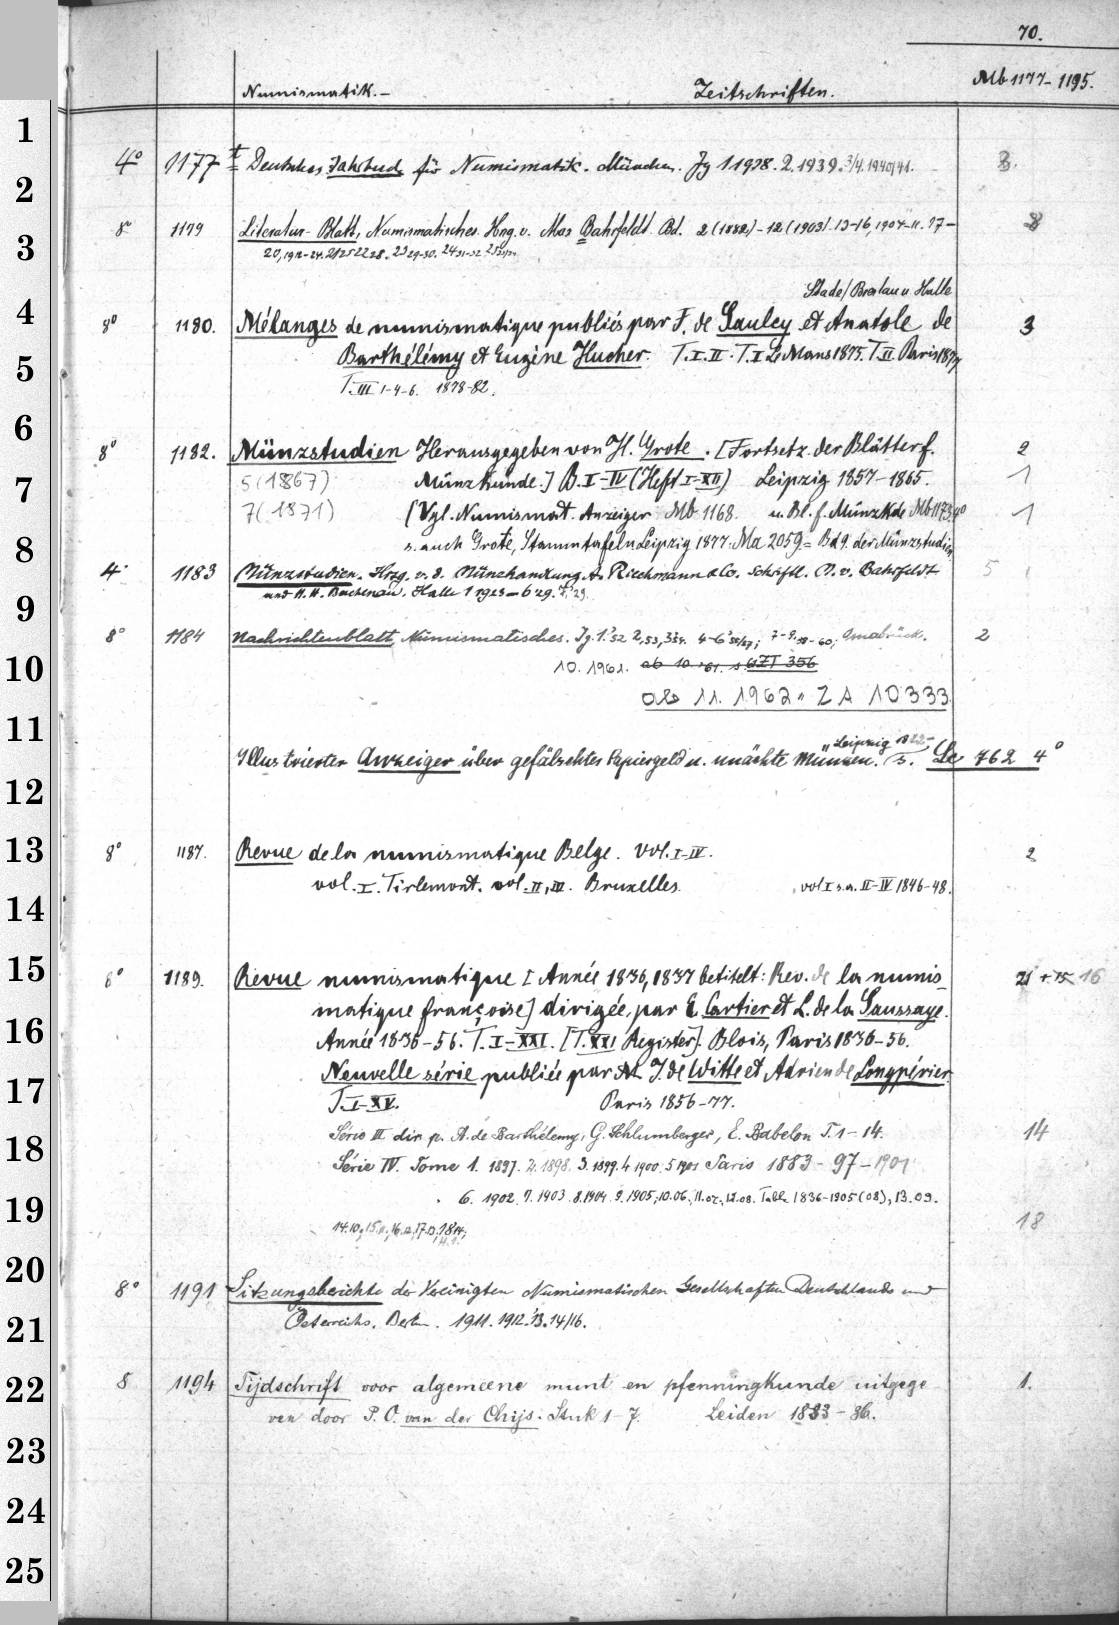 70.
Numismatik.- Zeitschriften. Mb 1177-1195.
1
4° 1177 t Deutsches Jahrbuch für Numismatik. München. Jg 1.1938. 2.1939. 3/4.1940/41. 3.
2
8° 1179 Literatur-Blatt, Numismatisches. Hrg. v. Max Bahrfeldt. Bd. 2 (1882) - 12 (1903). 13-16, 1904-11. 17- 8
3
Stade/Breslau u Halle
4
8° 1180. Mélanges de numismatique publiés par F. de Saulcy et Anatole de 3
5
Barthélémy et Eugène Hucher. T. I. II. T. I Le Mans 1875. T. II Paris 1877
T. III 1-4-6. 1878-82.
6
8° 1182. Münzstudien Herausgegeben von H. Grote. [Fortsetz. der Blätter f. 2
7
5 (1867) Münzkunde.] B. I-IV (Heft I-XII) Leipzig 1857-1865. 1
7 (1871) (Vgl. Numismat. Anzeiger Mb 1168. u. Bl. f. Münzkde Mb 1173 4° 1
8
s. auch Grote, Stammtafeln Leipzig 1877. Ma 2059 = Bd 9. der Münzstudien
4° 1183 Münzstudien. Hrzg. v. d. Münzhandlung A. Riechmann & Co. Schriftl. M. v. Bahrfeldt 5
9
und H. Buchenau. Halle 1 1923-6 29. 7. '29.
8° 1184 Nachrichtenblatt, Numismatisches. Jg. 1.'52 2,53, 3,54. 4-6 '55/57; 7-9. 58-60; Osnabrück. 2
10
10. 1961. ab 10 '61. s. 4ZT 356
11
ab 11. 1962 = ZA 10333
Leipzig 1822-
Illustrierter Anzeiger über gefälschtes Papiergeld u. unächte Münzen. s. Le 762 4°
12
13
8° 1187. Revue de la numismatique Belge. Vol. I-IV. 2
vol. I. Tirlemont. vol. II, III. Bruxelles. vol I s.a. II-IV 1846-48.
14
15
8° 1189. Revue numismatique [Année 1836, 1837 betitelt: Rev. de la numis- 21 + 15 16
16
matique françoise] dirigée, par E. Cartier et L. de la Saussaye.
Année 1836-56. T. I-XXI. [T. XXI Register]. Blois, Paris 1836-56.
17
Nouvelle série publiée par M J. de Witte et Adrien de Longpérier.
T. I-XV. Paris 1856-77.
18
Série III dir. p. A. de Barthélemy, G. Schlumberger, E. Babelon T. 1-14. 14
Série IV. Tome 1. 1897. 2. 1898. 3. 1899. 4 1900. 5 1901 Paris 1883-97-1901
19
6. 1902. 7. 1903. 8. 1904. 9. 1905, 10.06, 11.07, 12.08. Table 1836-1905 (08), 13.09.
14.10, 15.11, 16.12, 17.13, 18.14, 18
20
8° 1191 Sitzungsberichte der Vereinigten Numismatischen Gesellschaften Deutschlands und
21
Österreichs. Berlin. 1911. 1912. 13. 14/16.
22
8 1194 Tijdschrift voor algemeene munt en penningkunde uitgege 1.
ven door P. O. van der Chijs. Stuk 1-7. Leiden 1833-36.
23
24
25